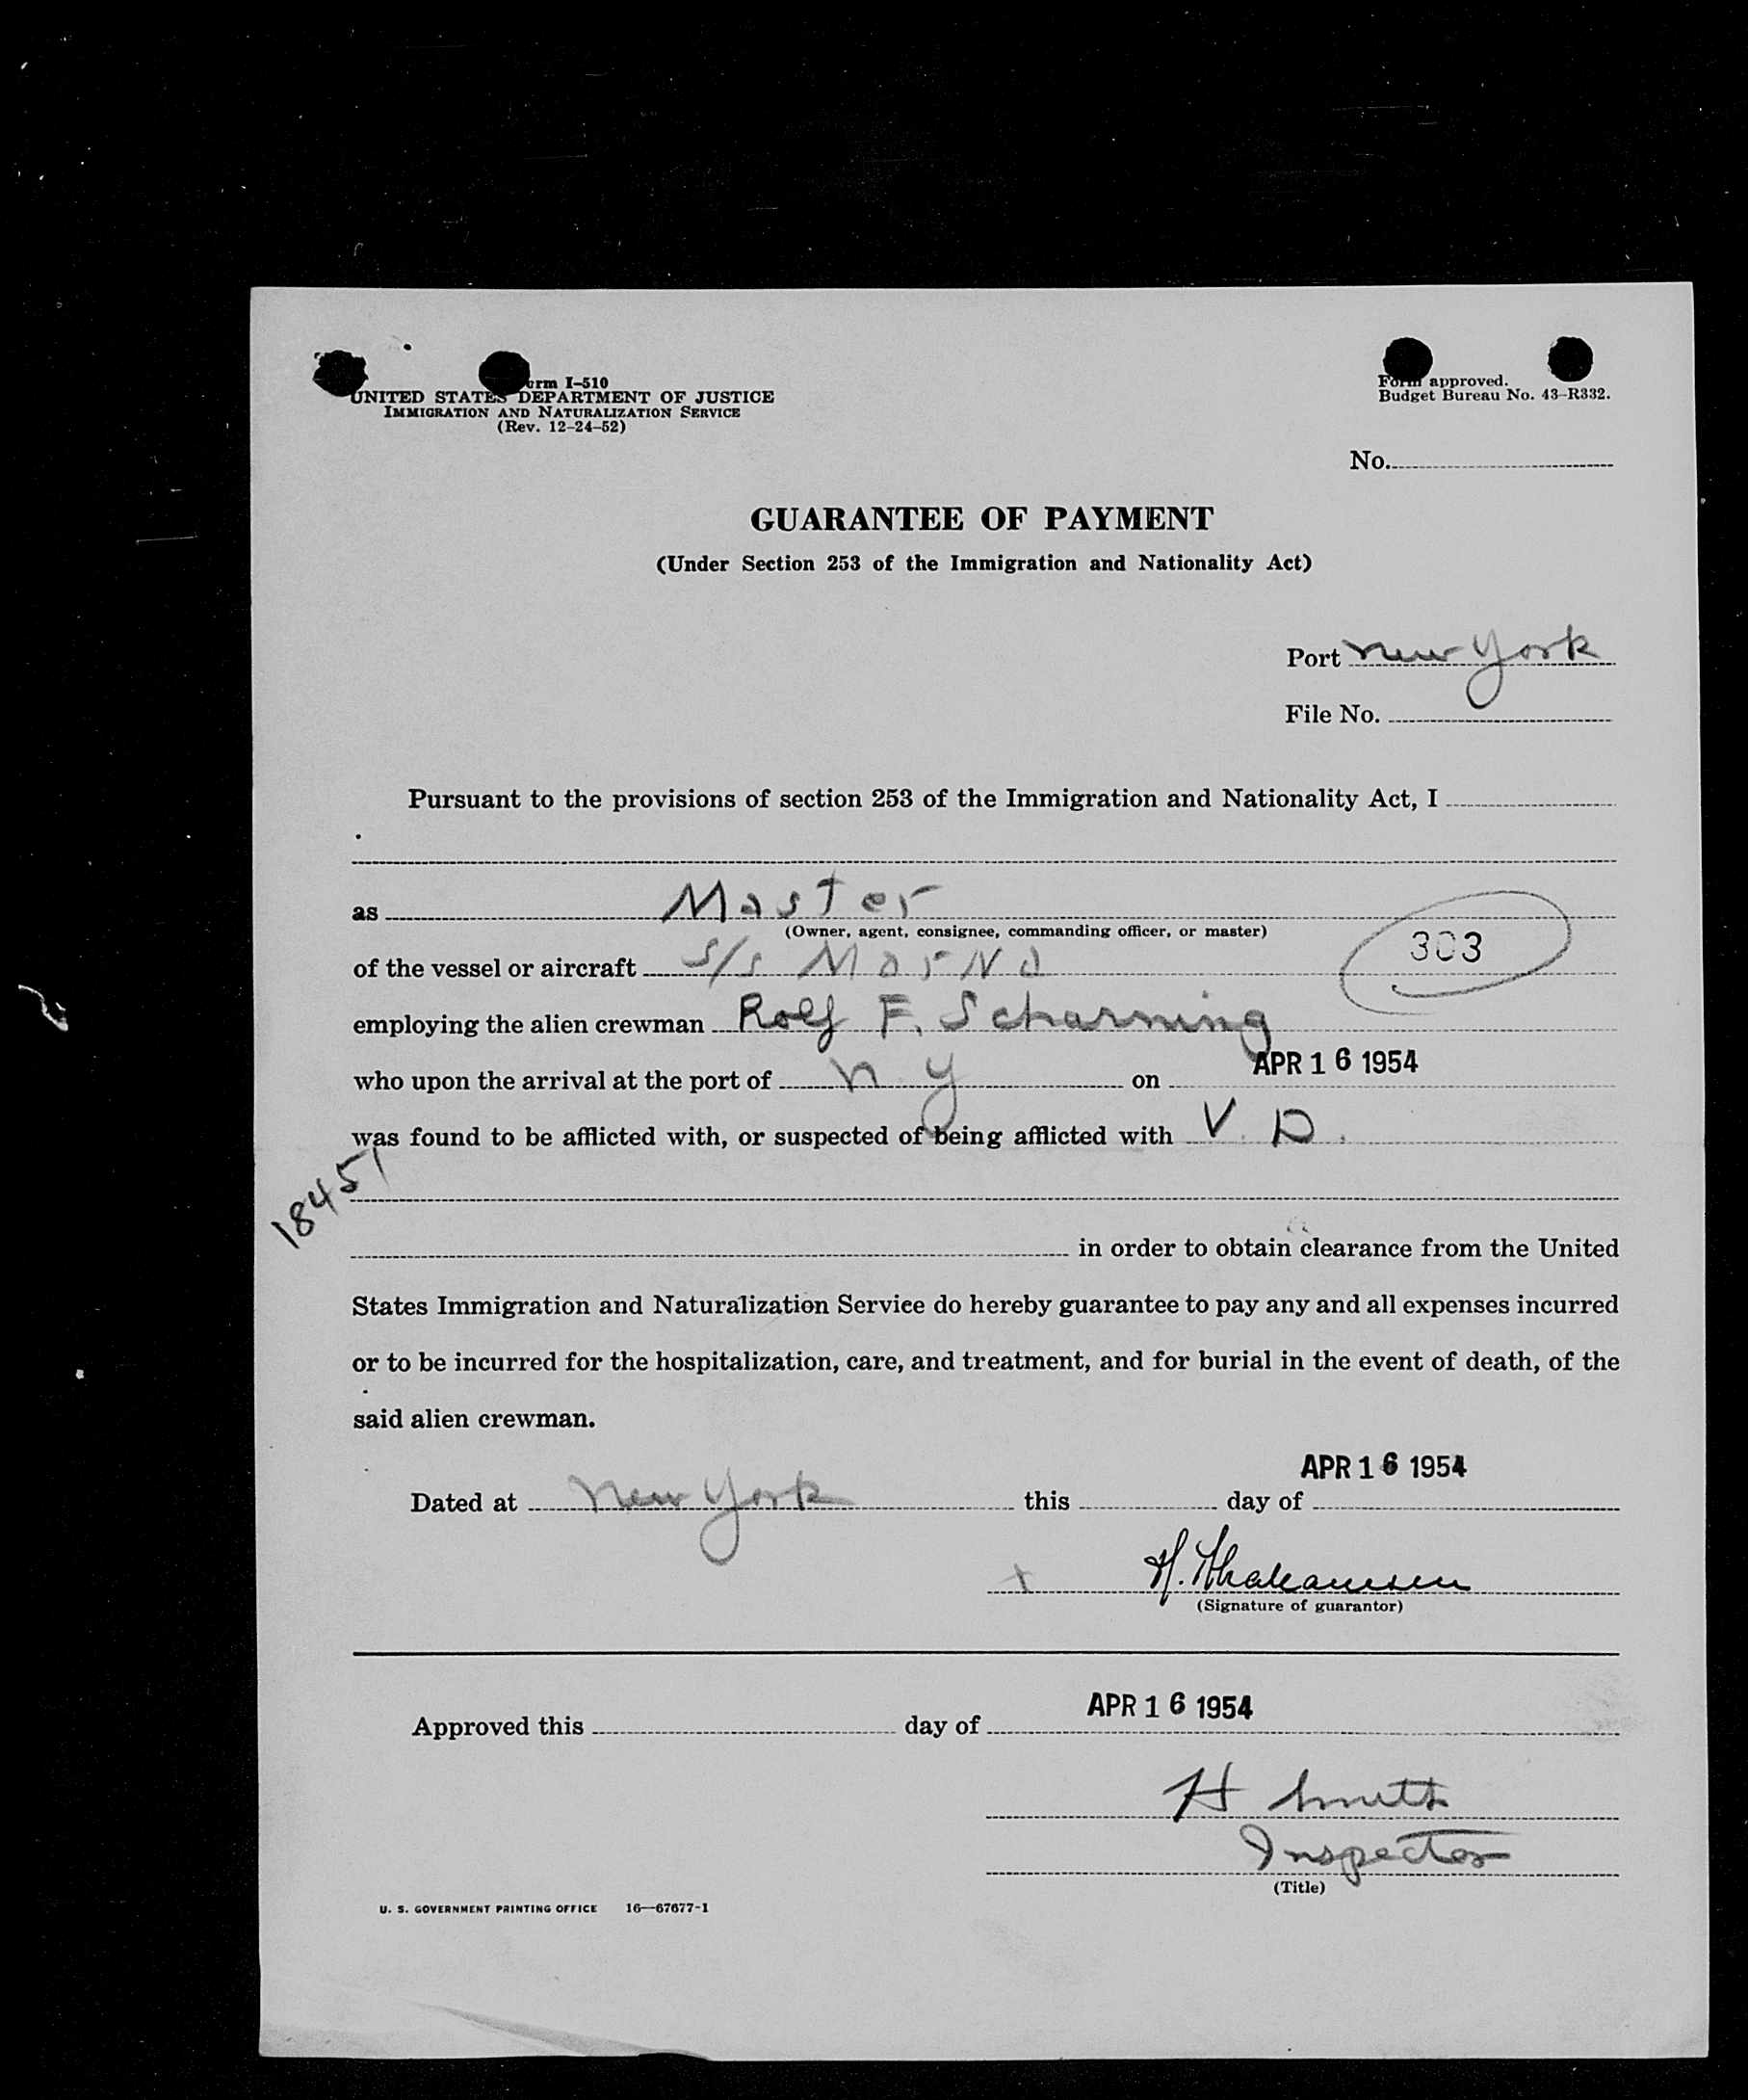 Form I-510
UNITED STATES DEPARTMENT OF JUSTICE
IMMIGRATION AND NATURALIZATION SERVICE
(Rev. 12-24-52)
Form approved.
Budget Bureau No. 43-R332.
No.
GUARANTEE OF PAYMENT
(Under Section 253 of the Immigration and Nationality Act)
Port New York
File No.
Pursuant to the provisions of section 253 of the Immigration and Nationality Act, I
as Master
(Owner, agent, consignee, commanding officer, or master)
303
of the vessel or aircraft S/S Morna
employing the alien crewman Rolf F. Scharning
who upon the arrival at the port of N Y on APR 16 1954
was found to be afflicted with, or suspected of being afflicted with V. D.
18451
in order to obtain clearance from the United
States Immigration and Naturalization Service do hereby guarantee to pay any and all expenses incurred
or to be incurred for the hospitalization, care, and treatment, and for burial in the event of death, of the
said alien crewman.
Dated at New York this day of APR 16 1954
x H.
(Signature of guarantor)
Approved this day of APR 16 1954
H Smith
Inspector
(Title)
U. S. GOVERNMENT PRINTING OFFICE 16—67677-1